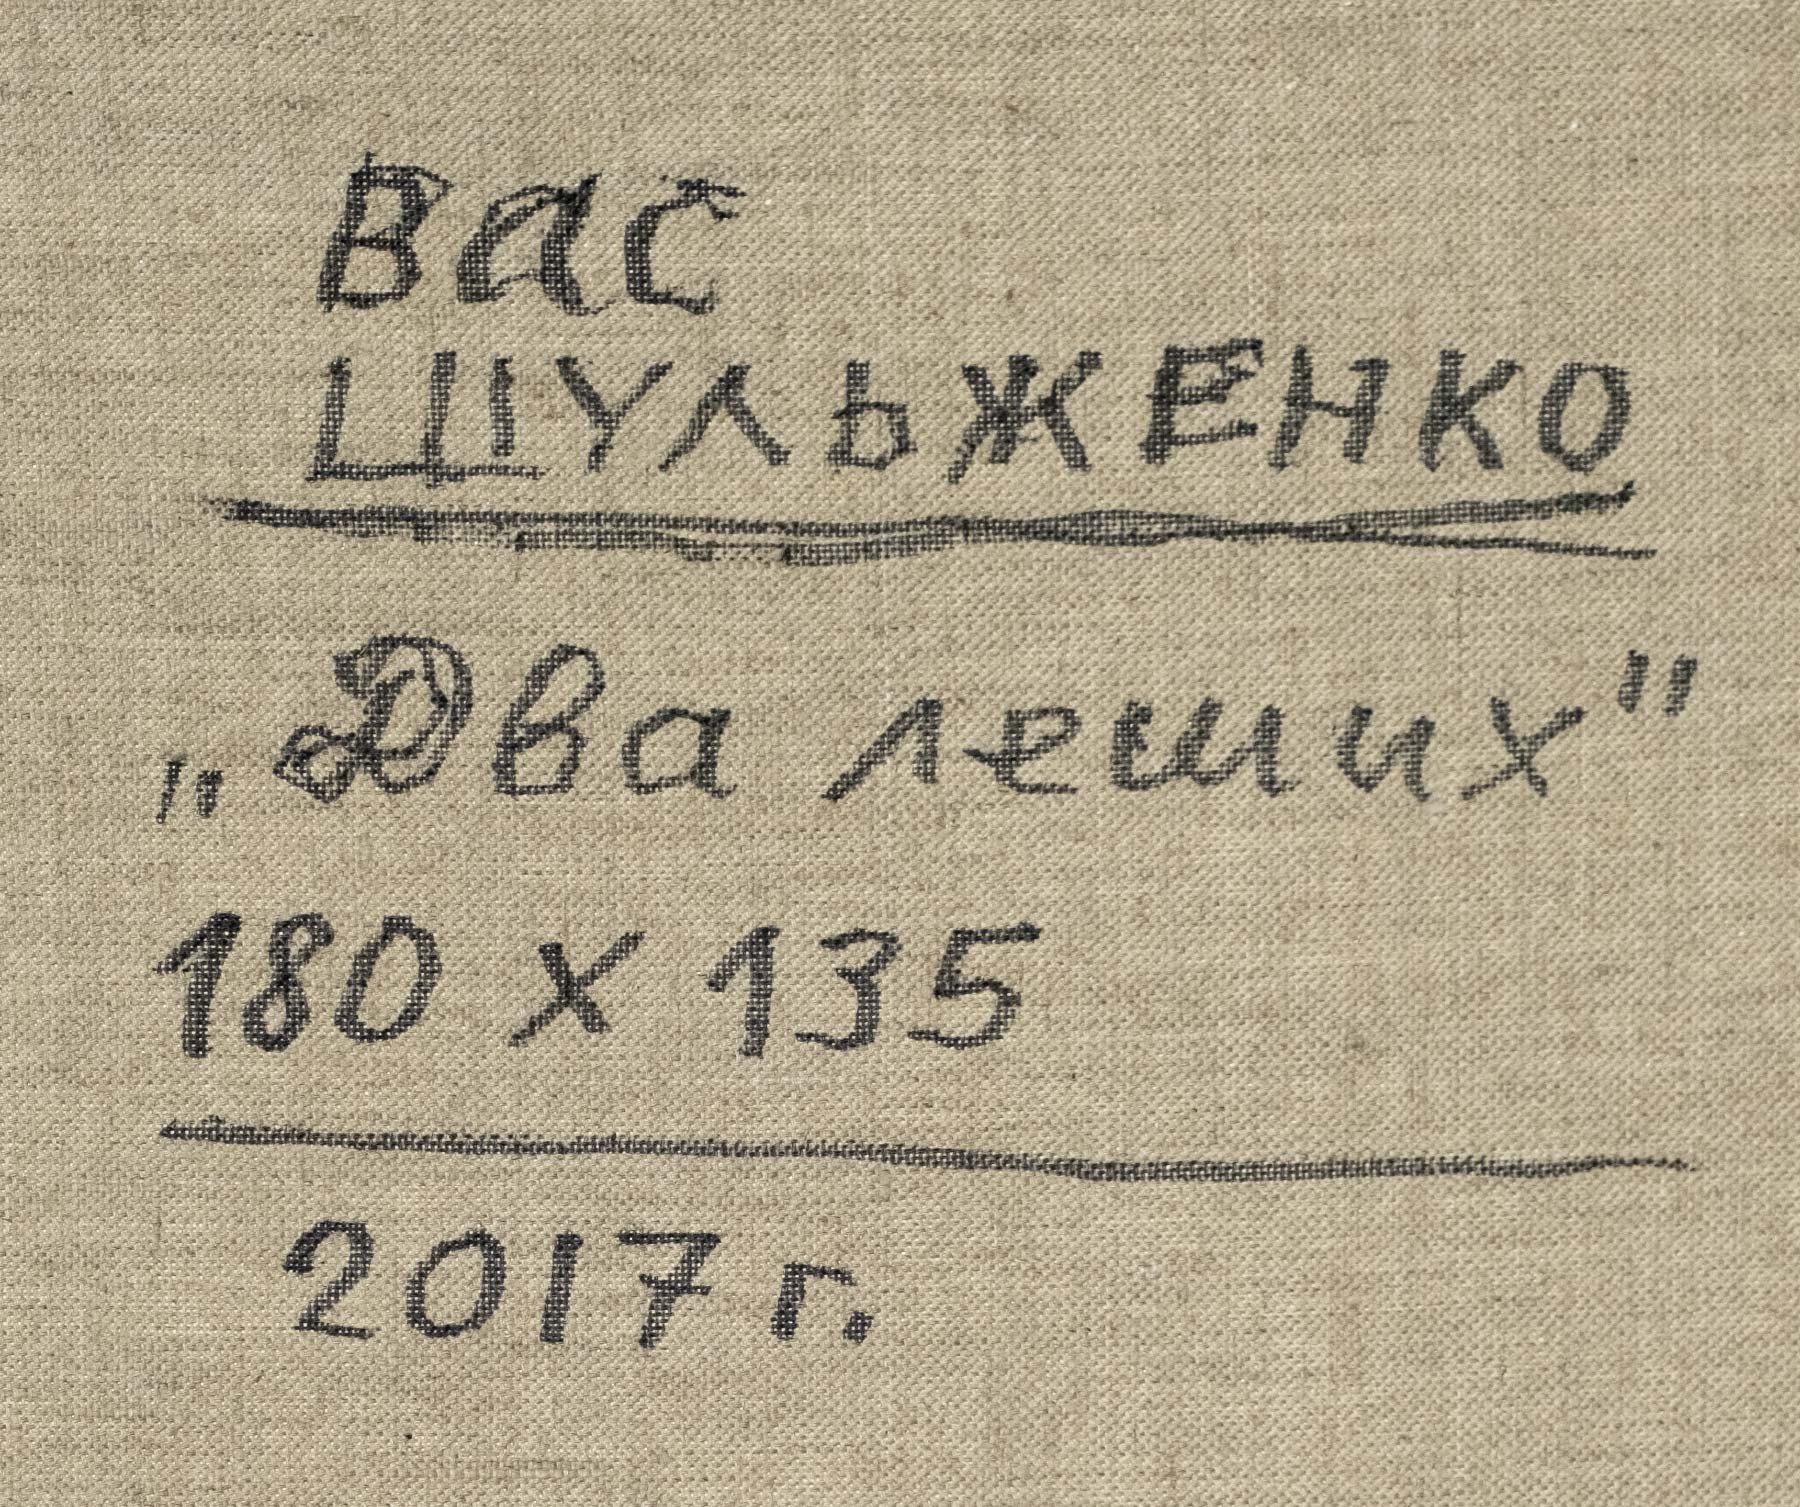 Вас
ШУЛЬЖЕНКО
„Два леших"
180 х 135
2017 г.